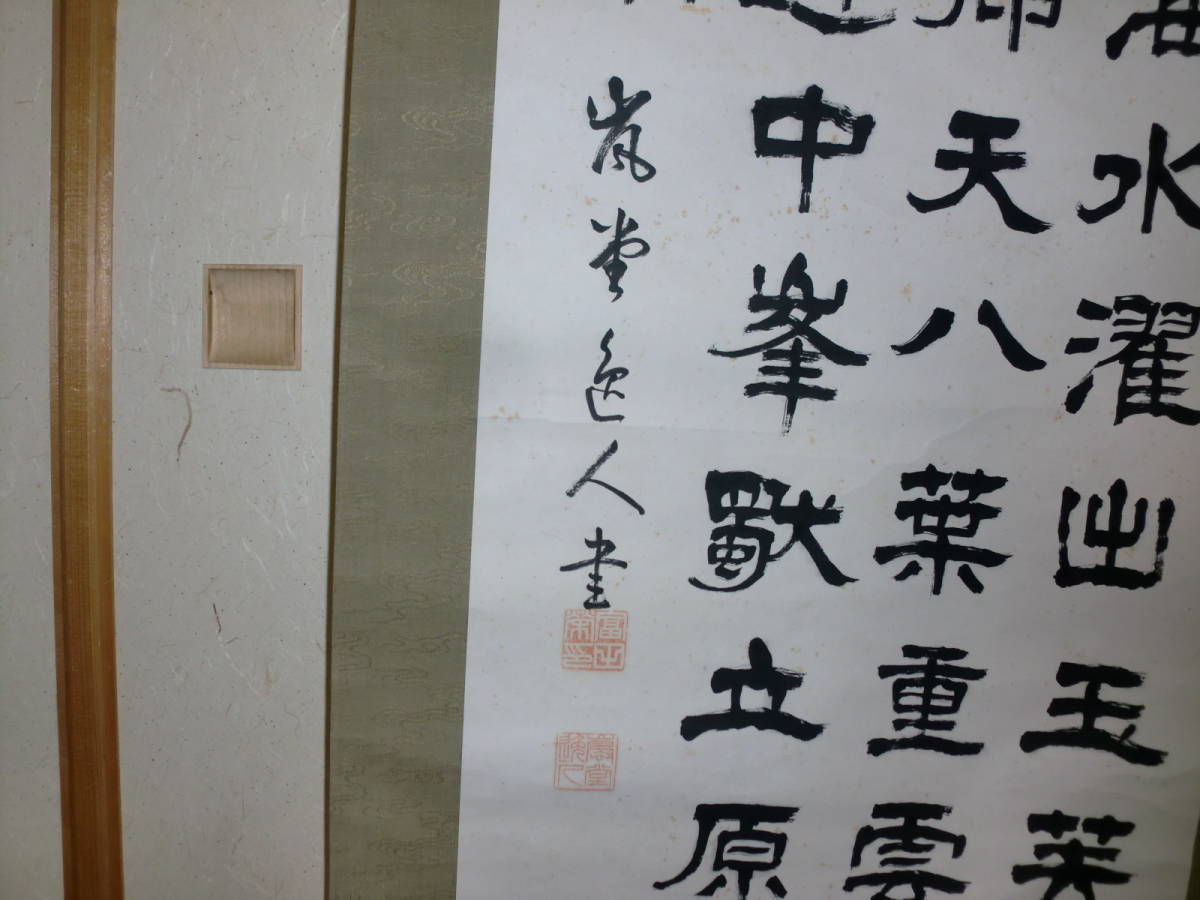 海水濯出玉芙
天八葉重雲
中峯獸立原
嵐堂逸人書